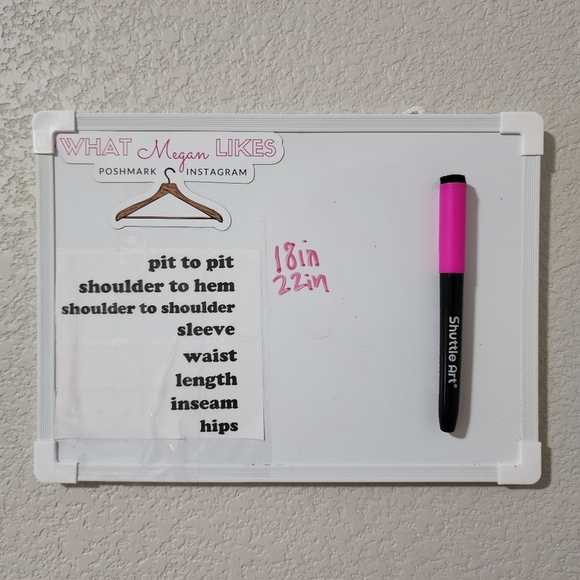 WHAT Megan LIKES
POSHMARK INSTAGRAM
pit to pit 18in
shoulder to hem 22in
shoulder to shoulder
sleeve
waist
length
inseam
hips
Shuttle Art®